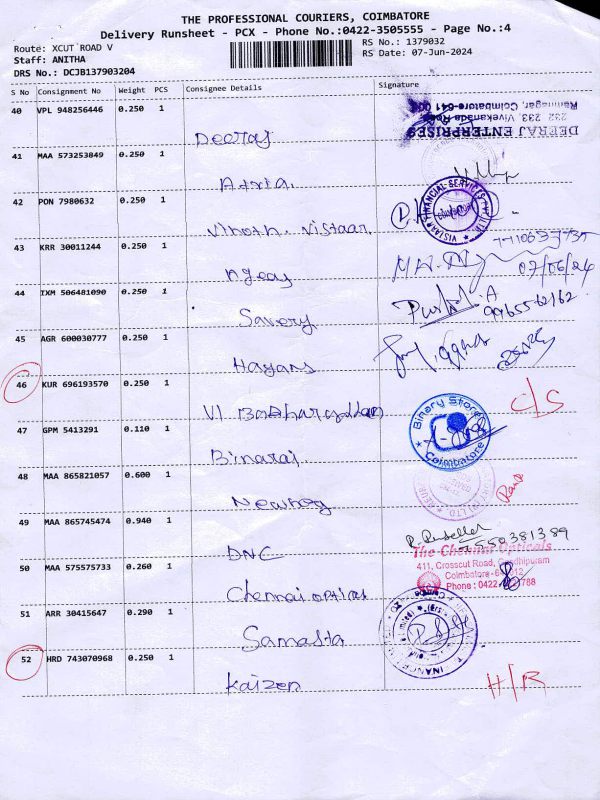 THE PROFESSIONAL COURIERS, COIMBATORE
Delivery Runsheet - PCX - Phone No.:0422-3505555 - Page No.:4
Route: XCUT ROAD V
RS No.: 1379032
Staff: ANITHA
RS Date: 07-Jun-2024
DRS No.: DCJB137903204
S No Consignment No Weight PCS Consignee Details Signature
40 VPL 948256446 0.250 1 Deeraj
DEERAJ ENTERPRISES
232, 233, Vivekanada Road,
Ramnagar, Coimbatore-641 009
41 MAA 573253849 0.250 1
42 PON 7980632 0.250 1 Vinoth. Vistaar
VISTAAR FINANCIAL SERVICES PVT LTD
43 KRR 30011244 0.250 1
07/06/24
44 IXM 506481090 0.250 1 Savery
9965562162
45 AGR 600030777 0.250 1
46 KUR 696193570 0.250 1 C/S
47 GPM 5413291 0.110 1 Binaraj
Binary Store
Coimbatore
48 MAA 865821057 0.600 1
49 MAA 865745474 0.940 1 DNC
50 MAA 575575733 0.260 1 Chennai optical
The Chennai Opticals
411, Crosscut Road, Gandhipuram
Coimbatore
Phone : 0422
51 ARR 30415647 0.290 1 Samasta
52 HRD 743070968 0.250 1 Kaizen H/R